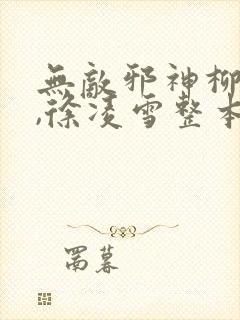 無敵邪神柳
,徐凌雪整本
罱暮